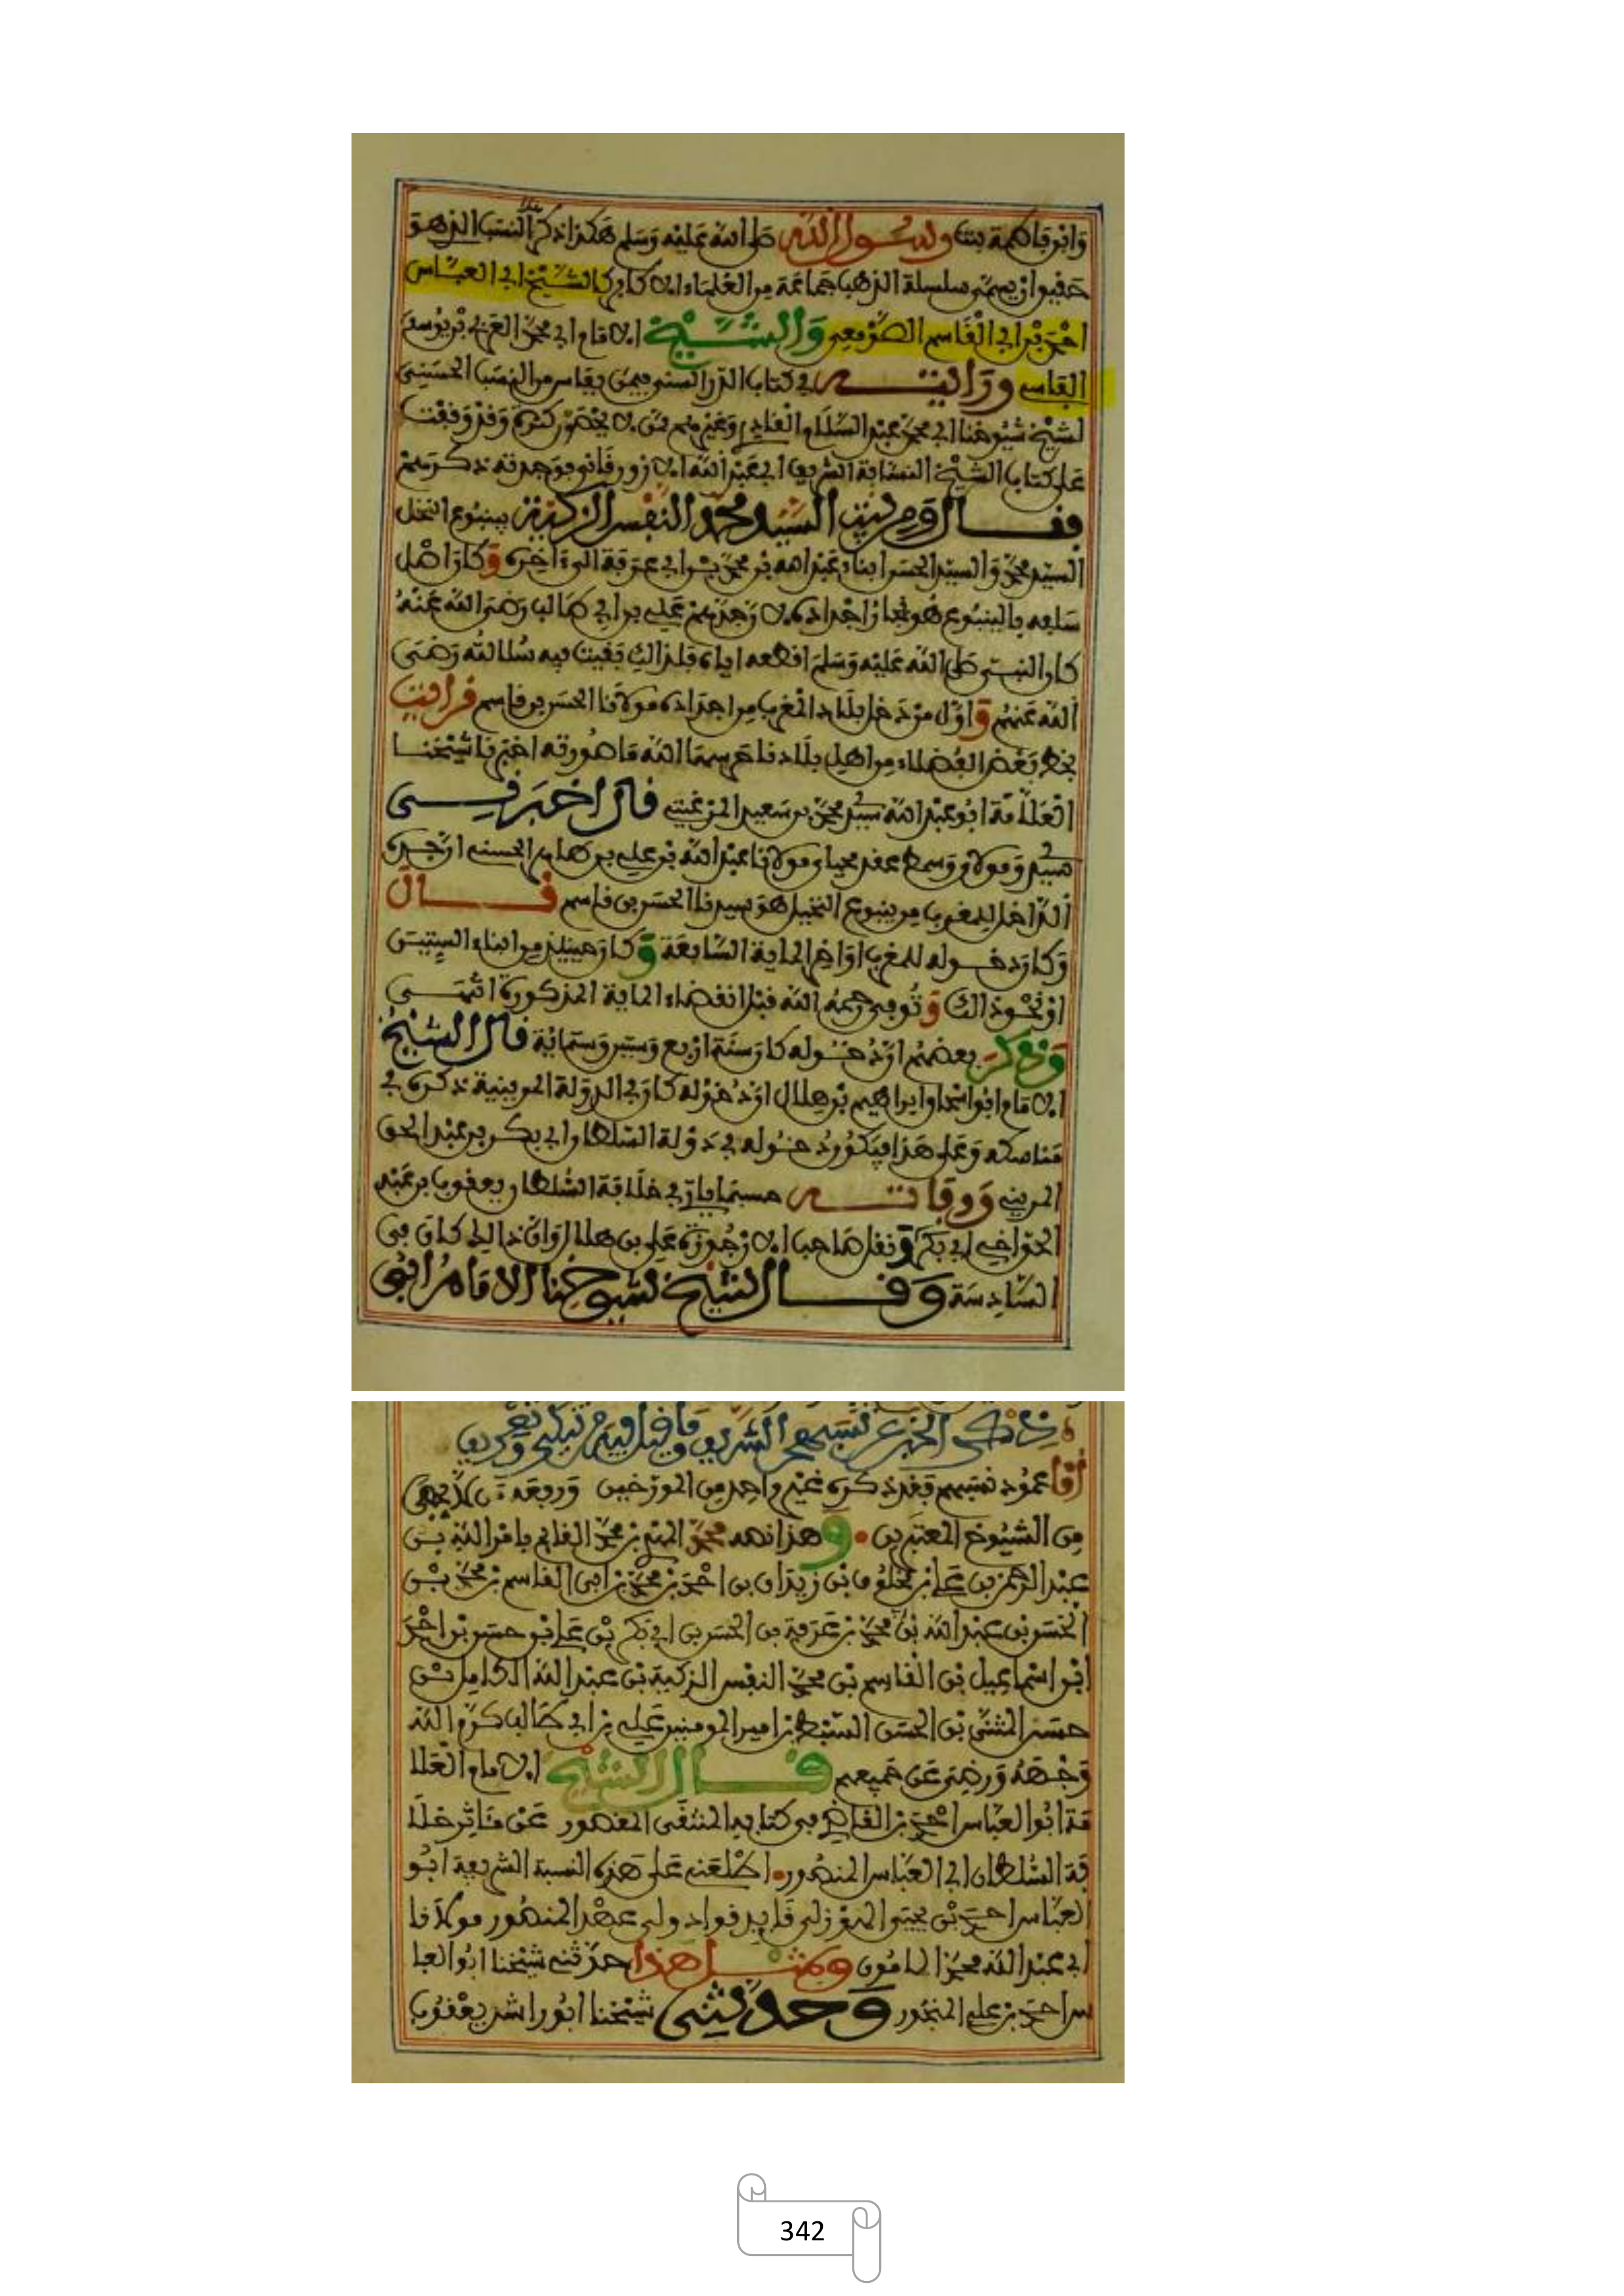 وابن فاطمة بنت رسول الله صلى الله عليه وسلم هكذا ذكر هذا النسب الذي هو
حقيق ان يسمى سلسلة الذهب جماعة من العلماء الاكابر كالشيخ ابي العباس
احمد بن ابي القاسم الصومعي والشيخ الامام ابي محمد العربي بن يوسف
الفاسي ورايته في كتاب الدر السني فيمن بفاس من النسب الحسني
لشيخ شيوخنا ابي محمد عبد السلام القادري وغيرهم ممن لا يحصى كثرة وقد وقفت
على كتاب الشيخ النسابة الشريف ابي عبد الله الازورقاني فوجدته ذكرهم
فقال ومن بني السيد محمد النفس الزكية بينبوع النخل
السيد محمد والسيد الحسن ابناء عبد الله بن محمد بن ابي عرفة الى ءاخره وكان اصل
سلفه بالينبوع هو نجار اجداده لان جدهم علي بن ابي طالب رضي الله عنه
كان النبي صلى الله عليه وسلم اقطعه اياه فلذالك بقيت فيه سلالته رضي
الله عنهم واول من دخل بلاد المغرب من اجداده مولانا الحسن بن قاسم قرات
بخط بعض الفضلاء من اهل بلادنا حرسها الله ما صورته اخبرنا شيخنا
العلامة ابو عبد الله سيدي محمد بن سعيد المرغيتي قال اخبرني
سيدي ومولاي ووسطى عقد محياي مولانا عبد الله بن علي بن طاهر الحسني ان جده
الداخل للمغرب من ينبوع النخيل هو سيدنا الحسن بن قاسم قال
وكان دخوله للمغرب اواخر الماية السابعة وكان حينئذ من ابناء الستين
او نحو ذالك وتوفي رحمه الله قبل انقضاء الماية المذكورة انتهى
وذكر بعضهم ان دخوله كان سنة اربع وستين وستمائة قال الشيخ
الامام ابو اسحاق ابراهيم بن هلال ان دخوله كان في الدولة المرينية ذكره في
مناسكه وعلى هذا فيكون دخوله في دولة السلطان ابي بكر بن عبد الحق
المريني ووفاته حسبما ياتي في خلافة السلطان يعقوب بن عبد
الحق اخي ابي بكر ونقل صاحب الارجوزة علي بن هلال وان ذالك كان في
السادسة وقال الشيخ شيوخنا الامام ابو
ذكر الخبر عن نسبهم الشريف وما قيل فيه من تبكيت وتحريف
اما عمود نسبهم فقد ذكره غير واحد من المورخين ورفعه
من الشيوخ المعتبرين وهذا نصه محمد المهدي بن محمد القائم بامر الله بن
عبد الرحمن بن علي بن مخلوف بن زيدان بن احمد بن محمد بن ابي القاسم بن محمد بن
الحسن بن عبد الله بن محمد بن عرفة بن الحسن بن ابي بكر بن علي بن حسن بن احمد
ابن اسماعيل بن القاسم بن محمد النفس الزكية بن عبد الله الكامل بن
حسن المثنى بن الحسن السبط بن امير المومنين علي بن ابي طالب كرم الله
وجهه ورضي عن جميعهم قال الشيخ الامام العلا
مة ابو العباس احمد بن القاضي في كتابه المنتقى المقصور على مئاثر خلا
فة السلطان ابي العباس المنصور اطلعني على هذه النسبة الشريفة ابو
العباس احمد بن يحيى الهوزالي قايد قواد ولي عهد المنصور مولانا
ابي عبد الله محمد المامون ومثل هذا حدثني شيخنا ابو العبا
س احمد بن علي المنجور وحدثني شيخنا ابو راشد يعقوب
342